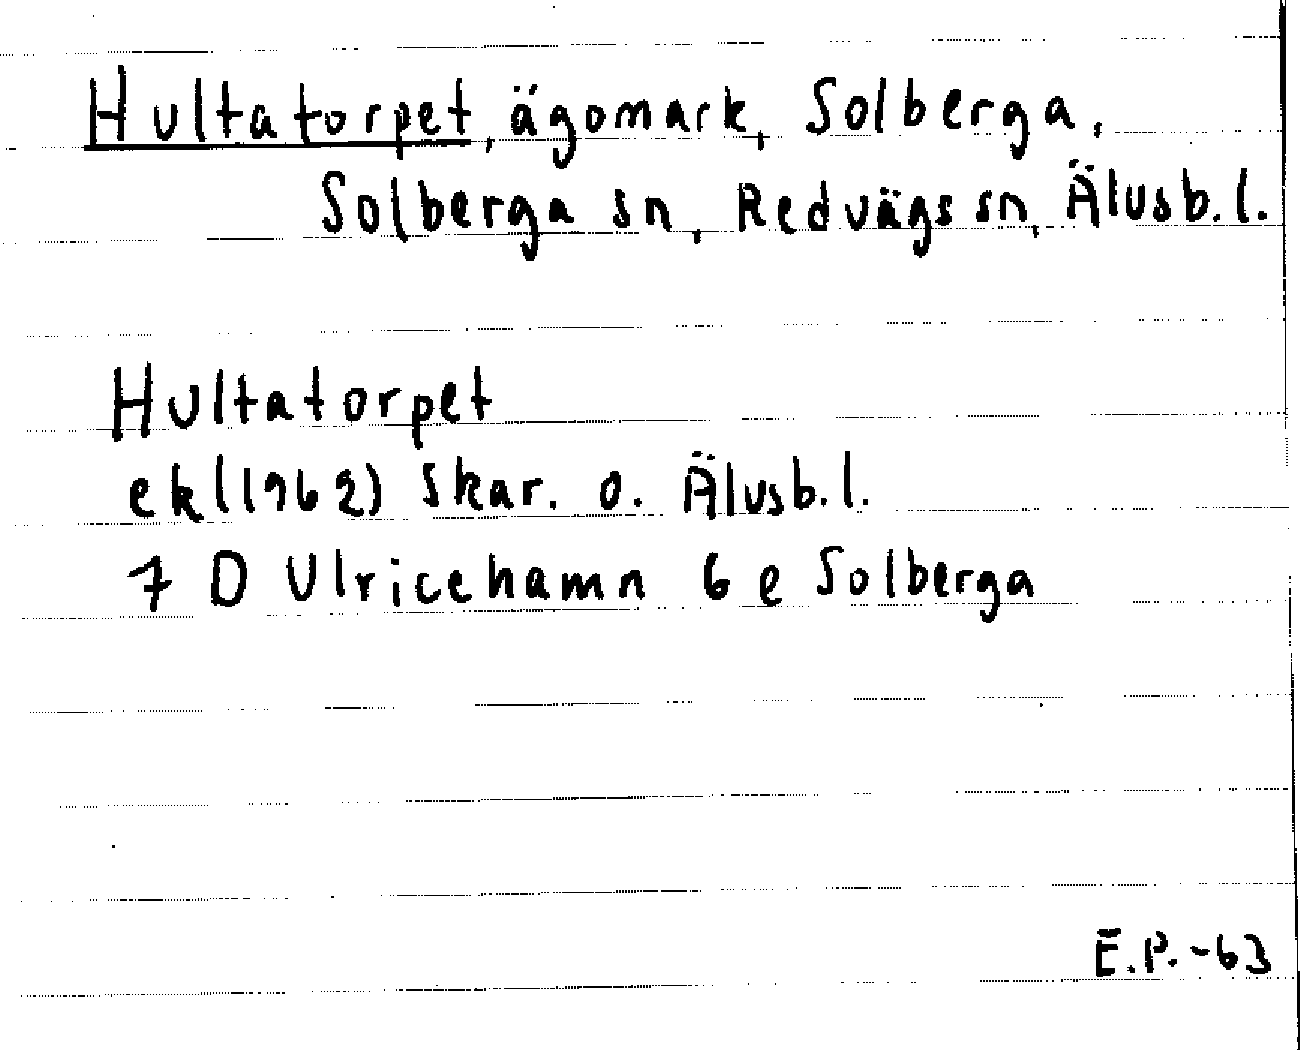 Hultatorpet, ägomark, Solberga,
Solberga sn, Redvägs sn, Älvsb.l.
Hultatorpet
ek(1962) Skar. o. Älvsb.l.
7 D Ulricehamn 6 e Solberga
E.P.-63